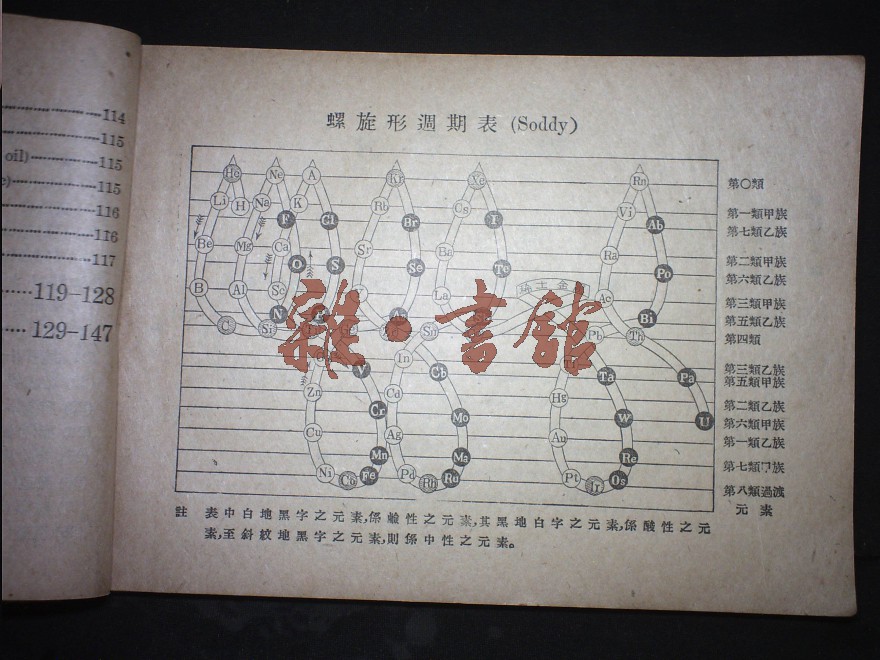 114
115
oil) 115
115
116
116
117
119-128
129-147
螺旋形週期表 (Soddy)
He Ne A Kr Xe Rn
Li H Na K Rb Cs Vi
F Cl Br I Ab
Be Mg Ca Sr Ba Ra
O S Se Te Po
B Al Sc La Ac
稀土金
N As Bi
C Si Sn Pb Th
V In Cb Ta Pa
Zn Cd Hg
Cr Mo W U
Cu Ag Au
Mn Ma Re
Ni Co Fe Pd Rh Ru Pt Ir Os
第〇類
第一類甲族
第七類乙族
第二類甲族
第六類乙族
第三類甲族
第五類乙族
第四類
第三類乙族
第五類甲族
第二類乙族
第六類甲族
第一類乙族
第七類甲族
第八類過渡
元素
註 表中白地黑字之元素,係鹼性之元素,其黑地白字之元素,係酸性之元
素,至斜紋地黑字之元素,則係中性之元素。
雜·書館